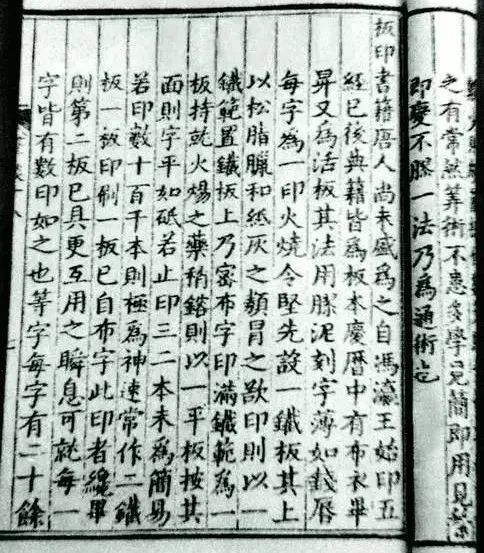 之有常然筭術不患多學見簡即用見繁
即變不膠一法乃為通術也
板印書籍唐人尚未盛為之自馮瀛王始印五
經已後典籍皆為板本慶曆中有布衣畢
昇又為活板其法用膠泥刻字薄如錢唇
每字為一印火燒令堅先設一鐵板其上
以松脂臘和紙灰之類冒之欲印則以一
鐵範置鐵板上乃密布字印滿鐵範為一
板持就火煬之藥稍鎔則以一平板按其
面則字平如砥若止印三二本未為簡易
若印數十百千本則極為神速常作二鐵
板一板印刷一板已自布字此印者纔畢
則第二板已具更互用之瞬息可就每一
字皆有數印如之也等字每字有二十餘